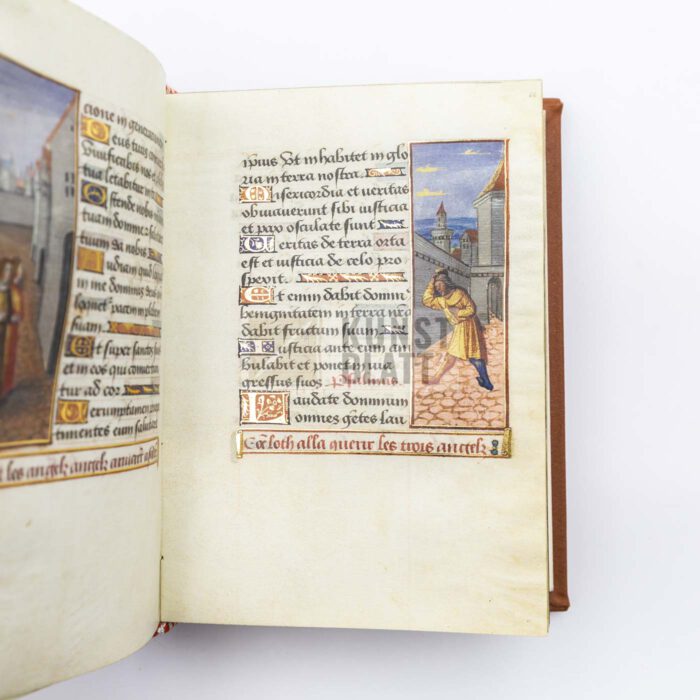 cione in generatione
eus tuus conu
vivificabis nos et
letabitur in
stende nobis
tuam domine
tuum da nobis
udiam quid
in me dominus deus
loquet pacem in plebem
suam
Et super sanctos
et in eos qui conver
tur ad cor
erumptamen prope
timentes eum salutare
les angelz angelz
ipius Vt inhabitet in glo
ria in terra nostra
Misericordia et veritas
obviaverunt sibi iusticia
et pax osculate sunt
Veritas de terra orta
est et iusticia de celo pro
spexit
Et enim dabit domin
benignitatem in terra no
dabit fructum suum
Iusticia ante eum am
bulabit et ponet in via
gressus suos Psalmus
Laudate dominum
omnes gẽtes lau
Cõe loth alla querir les trois angelz
KUNST